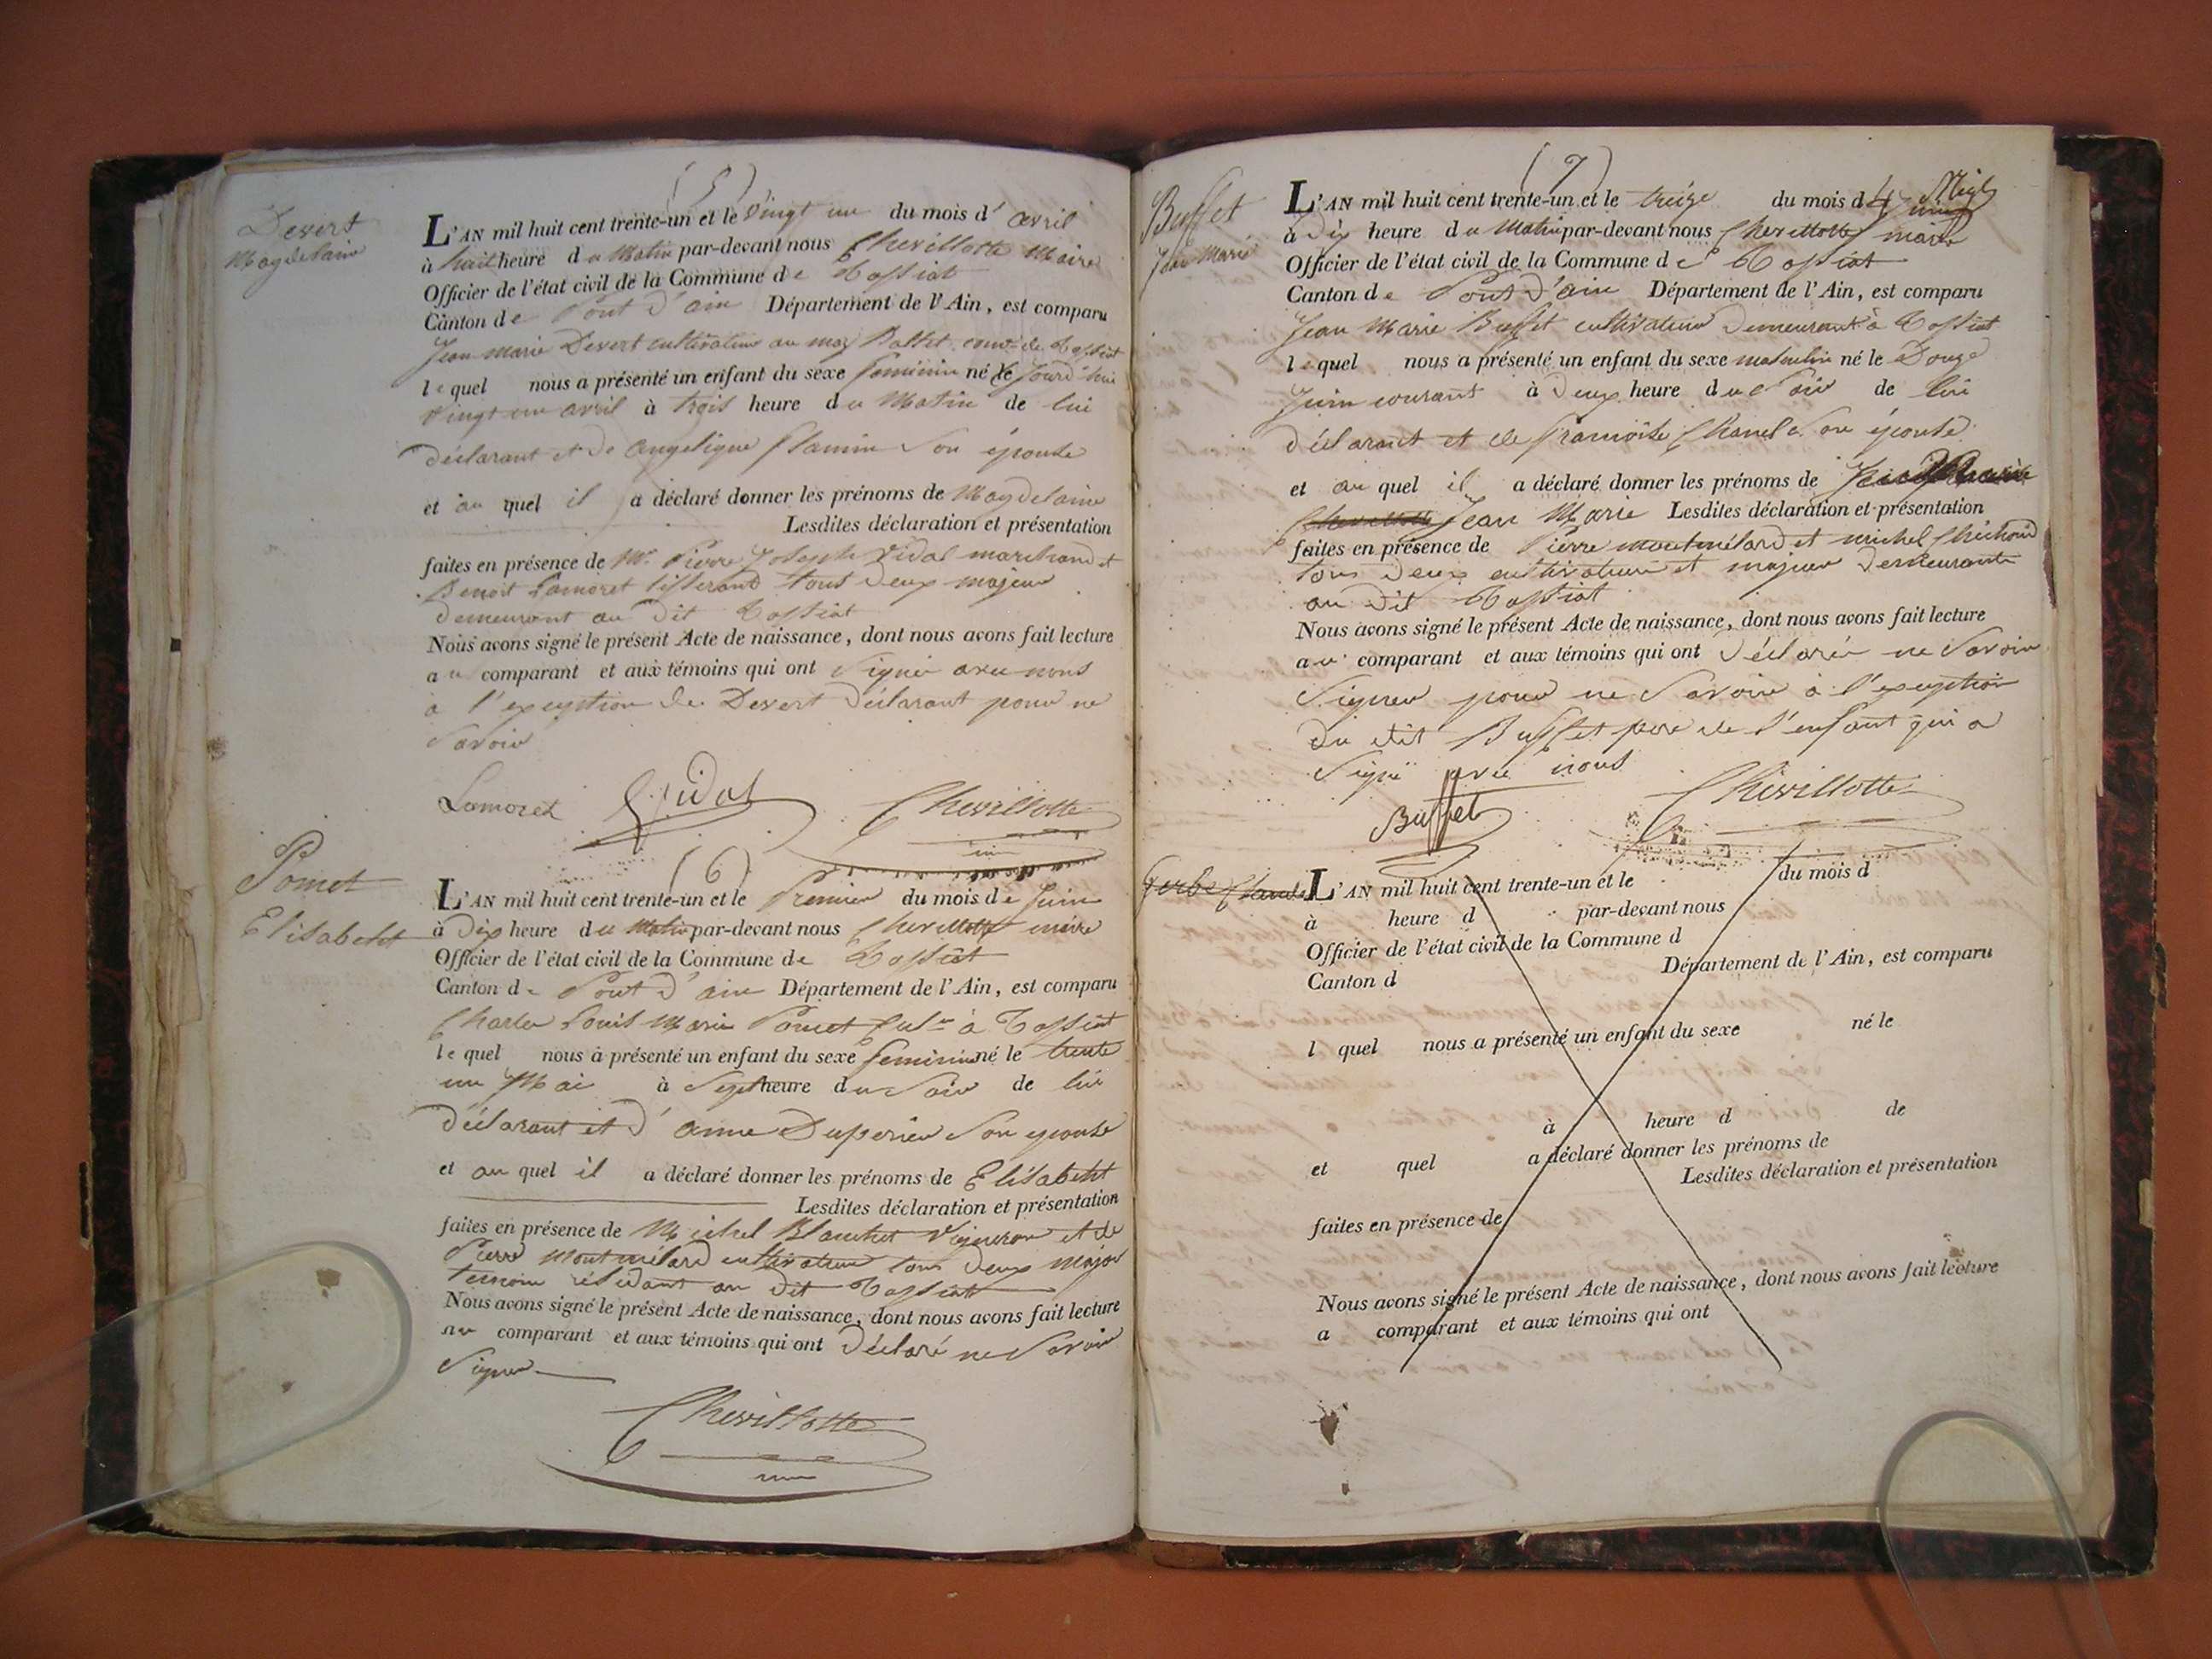 (5)
Desert
Magdelaine
L'AN mil huit cent trente-un et le vingt un du mois d' avril
à huit heure du Matin par-devant nous Chevillotte Maire
Officier de l'état civil de la Commune de Tossiat
Canton de Pont d'ain Département de l'Ain, est comparu
Jean Marie Desert cultivateur au Battet de Tossiat
lequel nous a présenté un enfant du sexe feminin né le jourd'hui
vingt un avril à trois heure du Matin de lui
déclarant et de angelique flamin son épouse
et au quel il a déclaré donner les prénoms de Magdelaine
Lesdites déclaration et présentation
faites en présence de Mr Pierre Joseph Vidal marchand et
Benoit Lamoret tisserand tous deux majeur
demeurant au dit Tossiat
Nous avons signé le présent Acte de naissance, dont nous avons fait lecture
au comparant et aux témoins qui ont signé avec nous
à l'exception de Desert déclarant pour ne
savoir
Lamoret Vidal Chevillotte
(6)
Pomet
Elisabeht
L'AN mil huit cent trente-un et le Premier du mois de Juin
à Dix heure du Matin par-devant nous Chevillotte maire
Officier de l'état civil de la Commune de Tossiat
Canton de Pont d'ain Département de l'Ain, est comparu
Charles Louis Marie Pomet culr à Tossiat
lequel nous à présenté un enfant du sexe feminin né le trente
un Mai à Sept heure du Soir de lui
déclarant et d'anne Duperieu son epouse
et au quel il a déclaré donner les prénoms de Elisabeht
Lesdites déclaration et présentation
faites en présence de Michel Blanchet Vigneron et de
Pierre Montmélard cultivateur tous deux major
temoin résidant au dit Tossiat
Nous avons signé le présent Acte de naissance, dont nous avons fait lecture
au comparant et aux témoins qui ont déclaré ne savoir
Signer
Chevillotte
(7)
Buffet
Jean Marie
L'AN mil huit cent trente-un et le treize du mois d Juin
à Dix heure du Matin par-devant nous Chevillotte maire
Officier de l'état civil de la Commune de Tossiat
Canton de Pont d'ain Département de l'Ain, est comparu
Jean Marie Buffet cultivateur demeurant à Tossiat
lequel nous a présenté un enfant du sexe masculin né le Douze
Juin courant à Deux heure du Soir de lui
déclarant et de françoise Chanel son épouse
et au quel il a déclaré donner les prénoms de
Chevillotte Jean Marie Lesdites déclaration et présentation
faites en présence de Pierre montmélard et michel
tous deux cultivateur et majeur demeurants
au dit Tossiat
Nous avons signé le présent Acte de naissance, dont nous avons fait lecture
au comparant et aux témoins qui ont déclarér ne savoir
signer pour ne savoir à l'exception
du dit Buffet pere de l'enfant qui a
signé avec nous
Buffet Chevillotte
Gerbe Claude
L'AN mil huit cent trente-un et le du mois d
à heure d par-devant nous
Officier de l'état civil de la Commune d
Canton d Département de l'Ain, est comparu
l quel nous a présenté un enfant du sexe né le
à heure d de
et quel a déclaré donner les prénoms de
Lesdites déclaration et présentation
faites en présence de
Nous avons signé le présent Acte de naissance, dont nous avons fait lecture
a comparant et aux témoins qui ont